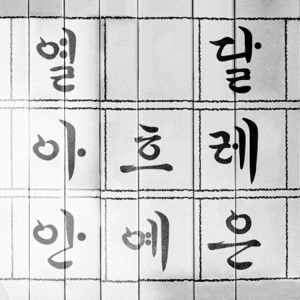 열 달
아흐레
안예은